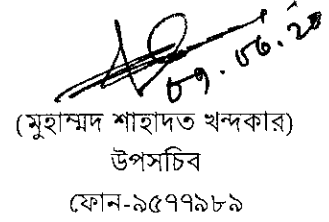 ০৭.০৬.২০
(মুহাম্মদ শাহাদত খন্দকার)
উপসচিব
ফোন-৯৫৭৭৯৮৯